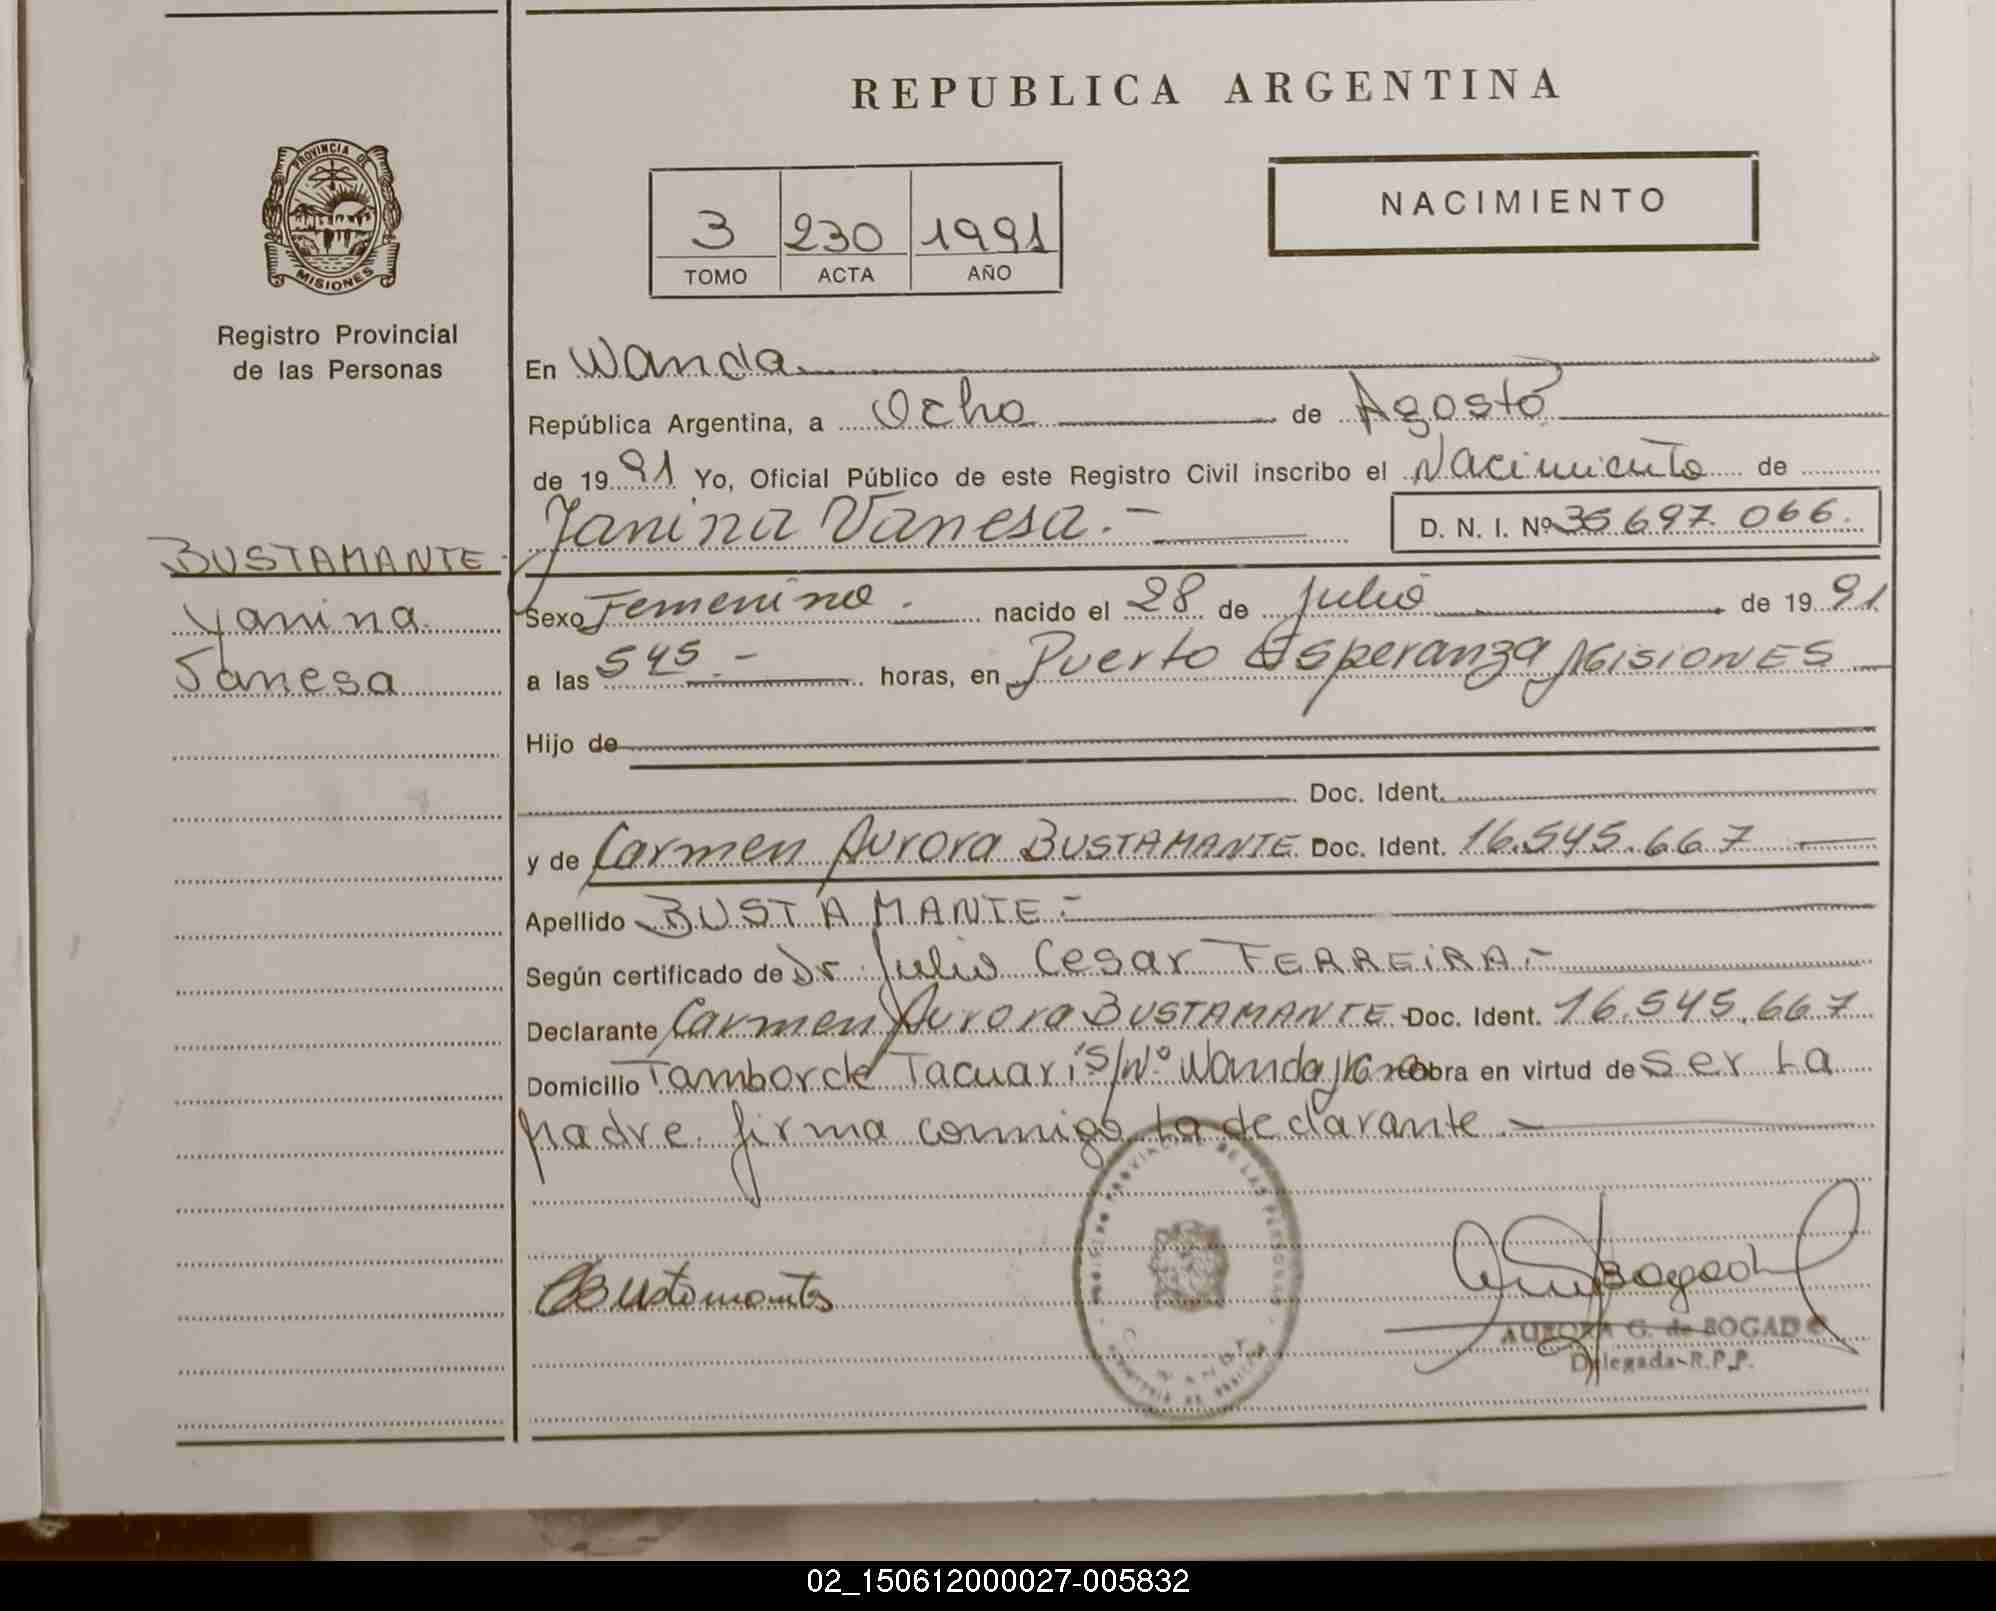 REPUBLICA ARGENTINA
PROVINCIA DE
MISIONES
Registro Provincial
de las Personas
3 230 1991
TOMO ACTA AÑO
NACIMIENTO
En Wanda
República Argentina, a Ocho de Agosto
de 1991 Yo, Oficial Público de este Registro Civil inscribo el Nacimiento de
Yanina Vanesa.- D. N. I. Nº 36.697.066.
BUSTAMANTE
Yanina
Vanesa
Sexo Femenino. nacido el 28 de Julio de 1991
a las 545.- horas, en Puerto Esperanza MISIONES
Hijo de
Doc. Ident.
y de Carmen Aurora BUSTAMANTE Doc. Ident. 16.545.667
Apellido BUSTAMANTE.-
Según certificado de Dr. Julio Cesar FERREIRA.-
Declarante Carmen Aurora BUSTAMANTE Doc. Ident. 16.545.667
Domicilio Tambor de Tacuari S/Nº Wanda obra en virtud de ser la
Madre firma conmigo la declarante.-
CBustamante
AURORA G. de BOGADO
Delegada-R.P.P.
02_150612000027-005832